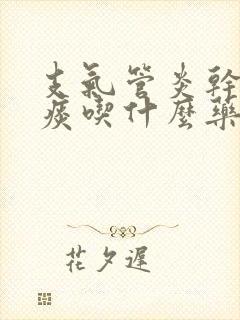 支氣管炎幹
痰喫什麼藥
花夕遲